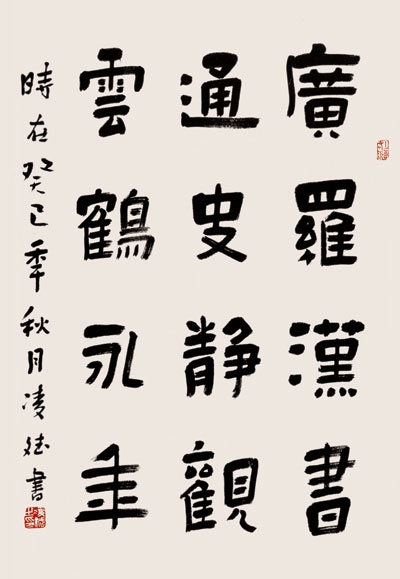 廣羅漢書
通史静觀
雲鶴永年
時在癸巳年秋月凌書